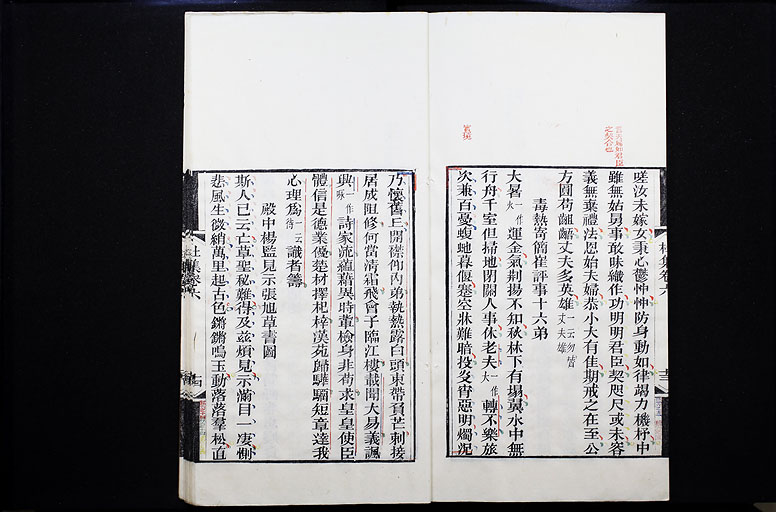 嗟汝未嫁女秉心鬱忡忡防身動如律竭力機杼中
雖無姑舅事敢昧織作功明明君臣契咫尺或未容
義無棄禮法恩始夫婦恭小大有佳期戒之在至公
方圓苟齟齬丈夫多英雄一云勿皆丈夫雄
毒熱寄簡崔評事十六弟
大暑一作火運金氣荆揚不知秋林下有塌翼水中無
行舟千室但掃地閉關人事休老夫一作大轉不樂旅
次兼百憂蝮虵暮偃蹇空牀難暗投炎宵惡明燭况
乃懷舊丘開襟仰內弟執熱露白頭束帶負芒刺接
居成阻修何當清霜飛會子臨江樓載聞大易義諷
興一作詠詩家流蘊藉異時輩檢身非苟求皇皇使臣
體信是德業優楚材擇杞梓漢苑歸驊騮短章達我
心理爲一云待識者籌
殿中楊監見示張旭草書圖
斯人已云亡草聖秘難得及茲煩見示滿目一凄惻
悲風生微綃萬里起古色鏘鏘鳴玉動落落羣松直